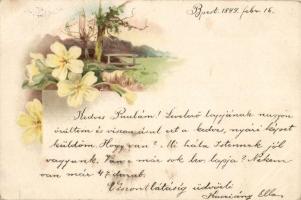 Bpest. 1899. febr. 16.
Kedves Paulám! Levelező lapjának nagyon
örültem és viszonzásul ezt a kedves, nyári képet
küldöm. Hogy van? Mi hála Istennek jól
vagyunk. Van-e már sok lev. lapja? Nekem
van már 47 darab.
Viszontlátásig üdvözli
Ella